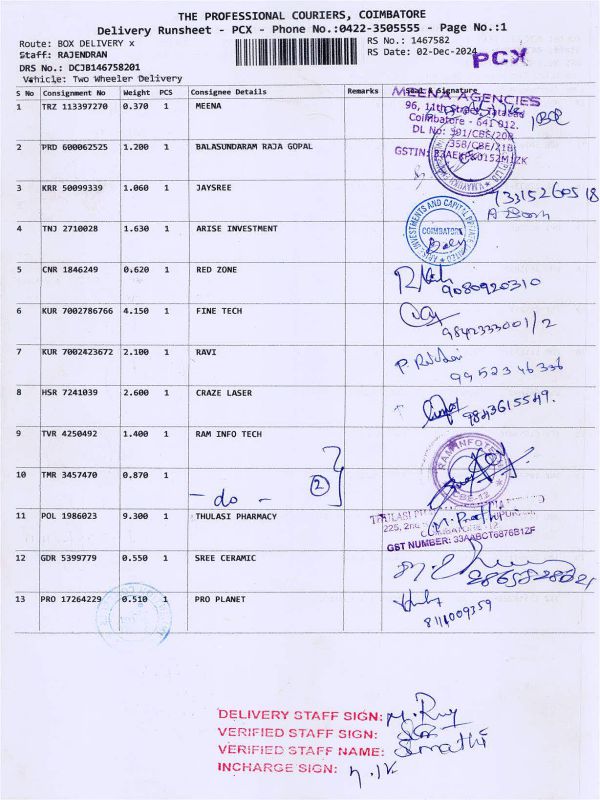 THE PROFESSIONAL COURIERS, COIMBATORE
Delivery Runsheet - PCX - Phone No.:0422-3505555 - Page No.:1
Route: BOX DELIVERY x RS No.: 1467582
Staff: RAJENDRAN RS Date: 02-Dec-2024 PCX
DRS No.: DCJB146758201
Vehicle: Two Wheeler Delivery
S No Consignment No Weight PCS Consignee Details Remarks Seal & Signature
MEENA AGENCIES
1 TRZ 113397270 0.370 1 MEENA
96, 11th Street, Tatabad
Coimbatore - 641 012.
DL No: 391/CBE/20B
358/CBE/21B
2 PRD 600062525 1.200 1 BALASUNDARAM RAJA GOPAL
GSTIN:
3 KRR 50099339 1.060 1 JAYSREE
4 TNJ 2710028 1.630 1 ARISE INVESTMENT
ARISE INVESTMENTS AND CAPITAL PRIVATE LIMITED
COIMBATORE
5 CNR 1846249 0.620 1 RED ZONE
9080920310
6 KUR 7002786766 4.150 1 FINE TECH
9842333001/2
7 KUR 7002423672 2.100 1 RAVI
9952346336
8 HSR 7241039 2.600 1 CRAZE LASER
9843615549.
9 TVR 4250492 1.400 1 RAM INFO TECH
RAM INFOTECH
CBE-12
10 TMR 3457470 0.870 1
- do - 2
11 POL 1986023 9.300 1 THULASI PHARMACY
THULASI
225, 2nd
GST NUMBER: 33AABCT6876B1ZF
12 GDR 5399779 0.550 1 SREE CERAMIC
13 PRO 17264229 0.510 1 PRO PLANET
8111009359
DELIVERY STAFF SIGN:
VERIFIED STAFF SIGN:
VERIFIED STAFF NAME: Sumathi
INCHARGE SIGN: